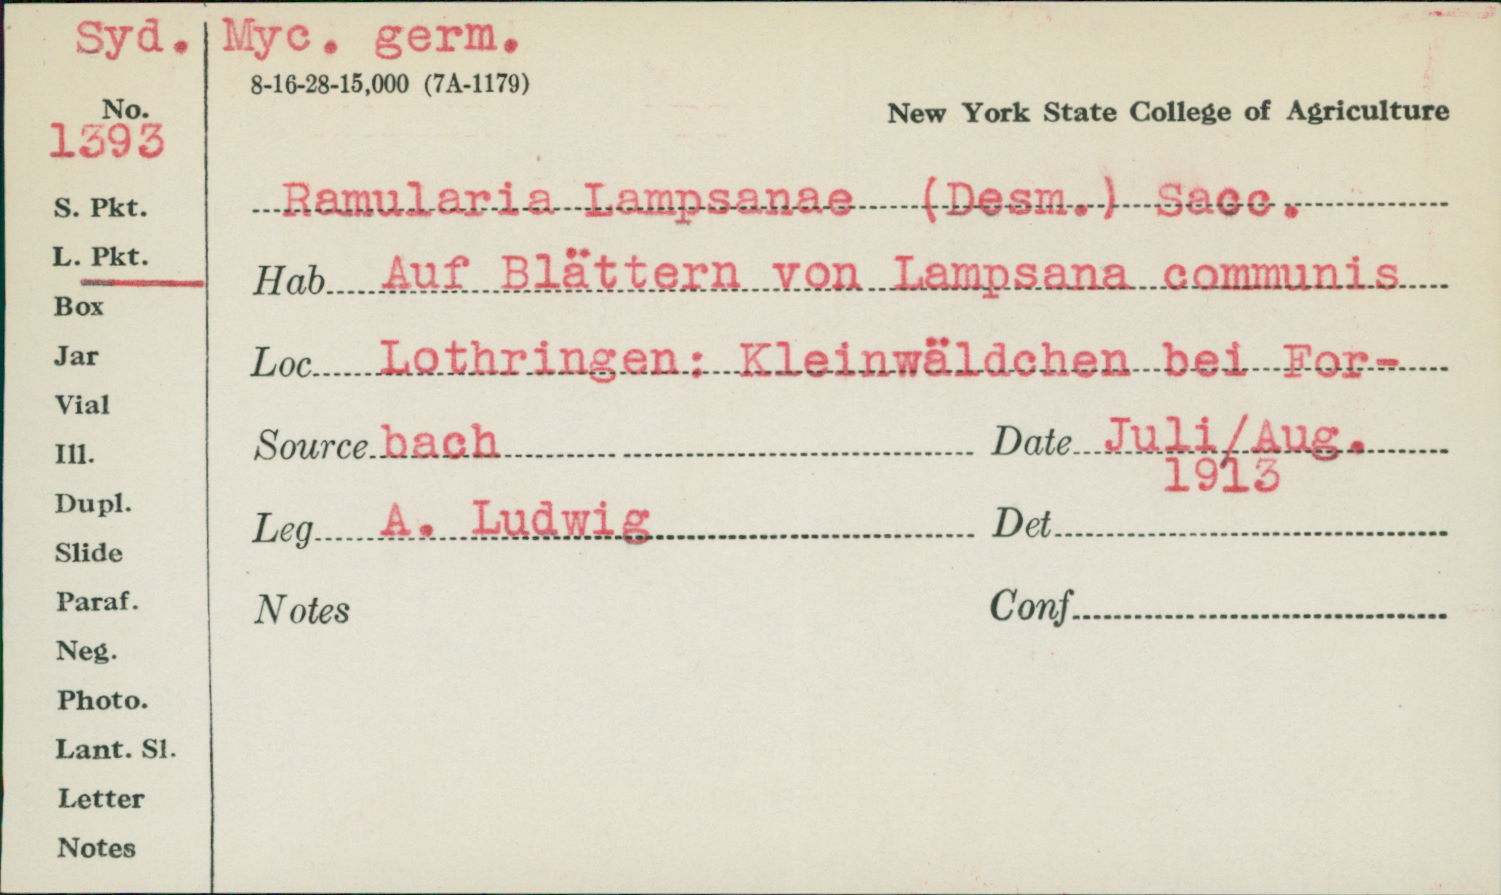 Syd. Myc. germ.
8-16-28-15,000 (7A-1179)
No.
1393
New York State College of Agriculture
S. Pkt.
Ramularia Lampsanae (Desm.) Sacc.
L. Pkt.
Hab Auf Blättern von Lampsana communis
Box
Jar
Loc Lothringen: Kleinwäldchen bei For-
Vial
Ill.
Source bach Date Juli/Aug.
1913
Dupl.
Leg A. Ludwig Det
Slide
Paraf.
Notes Conf
Neg.
Photo.
Lant. Sl.
Letter
Notes